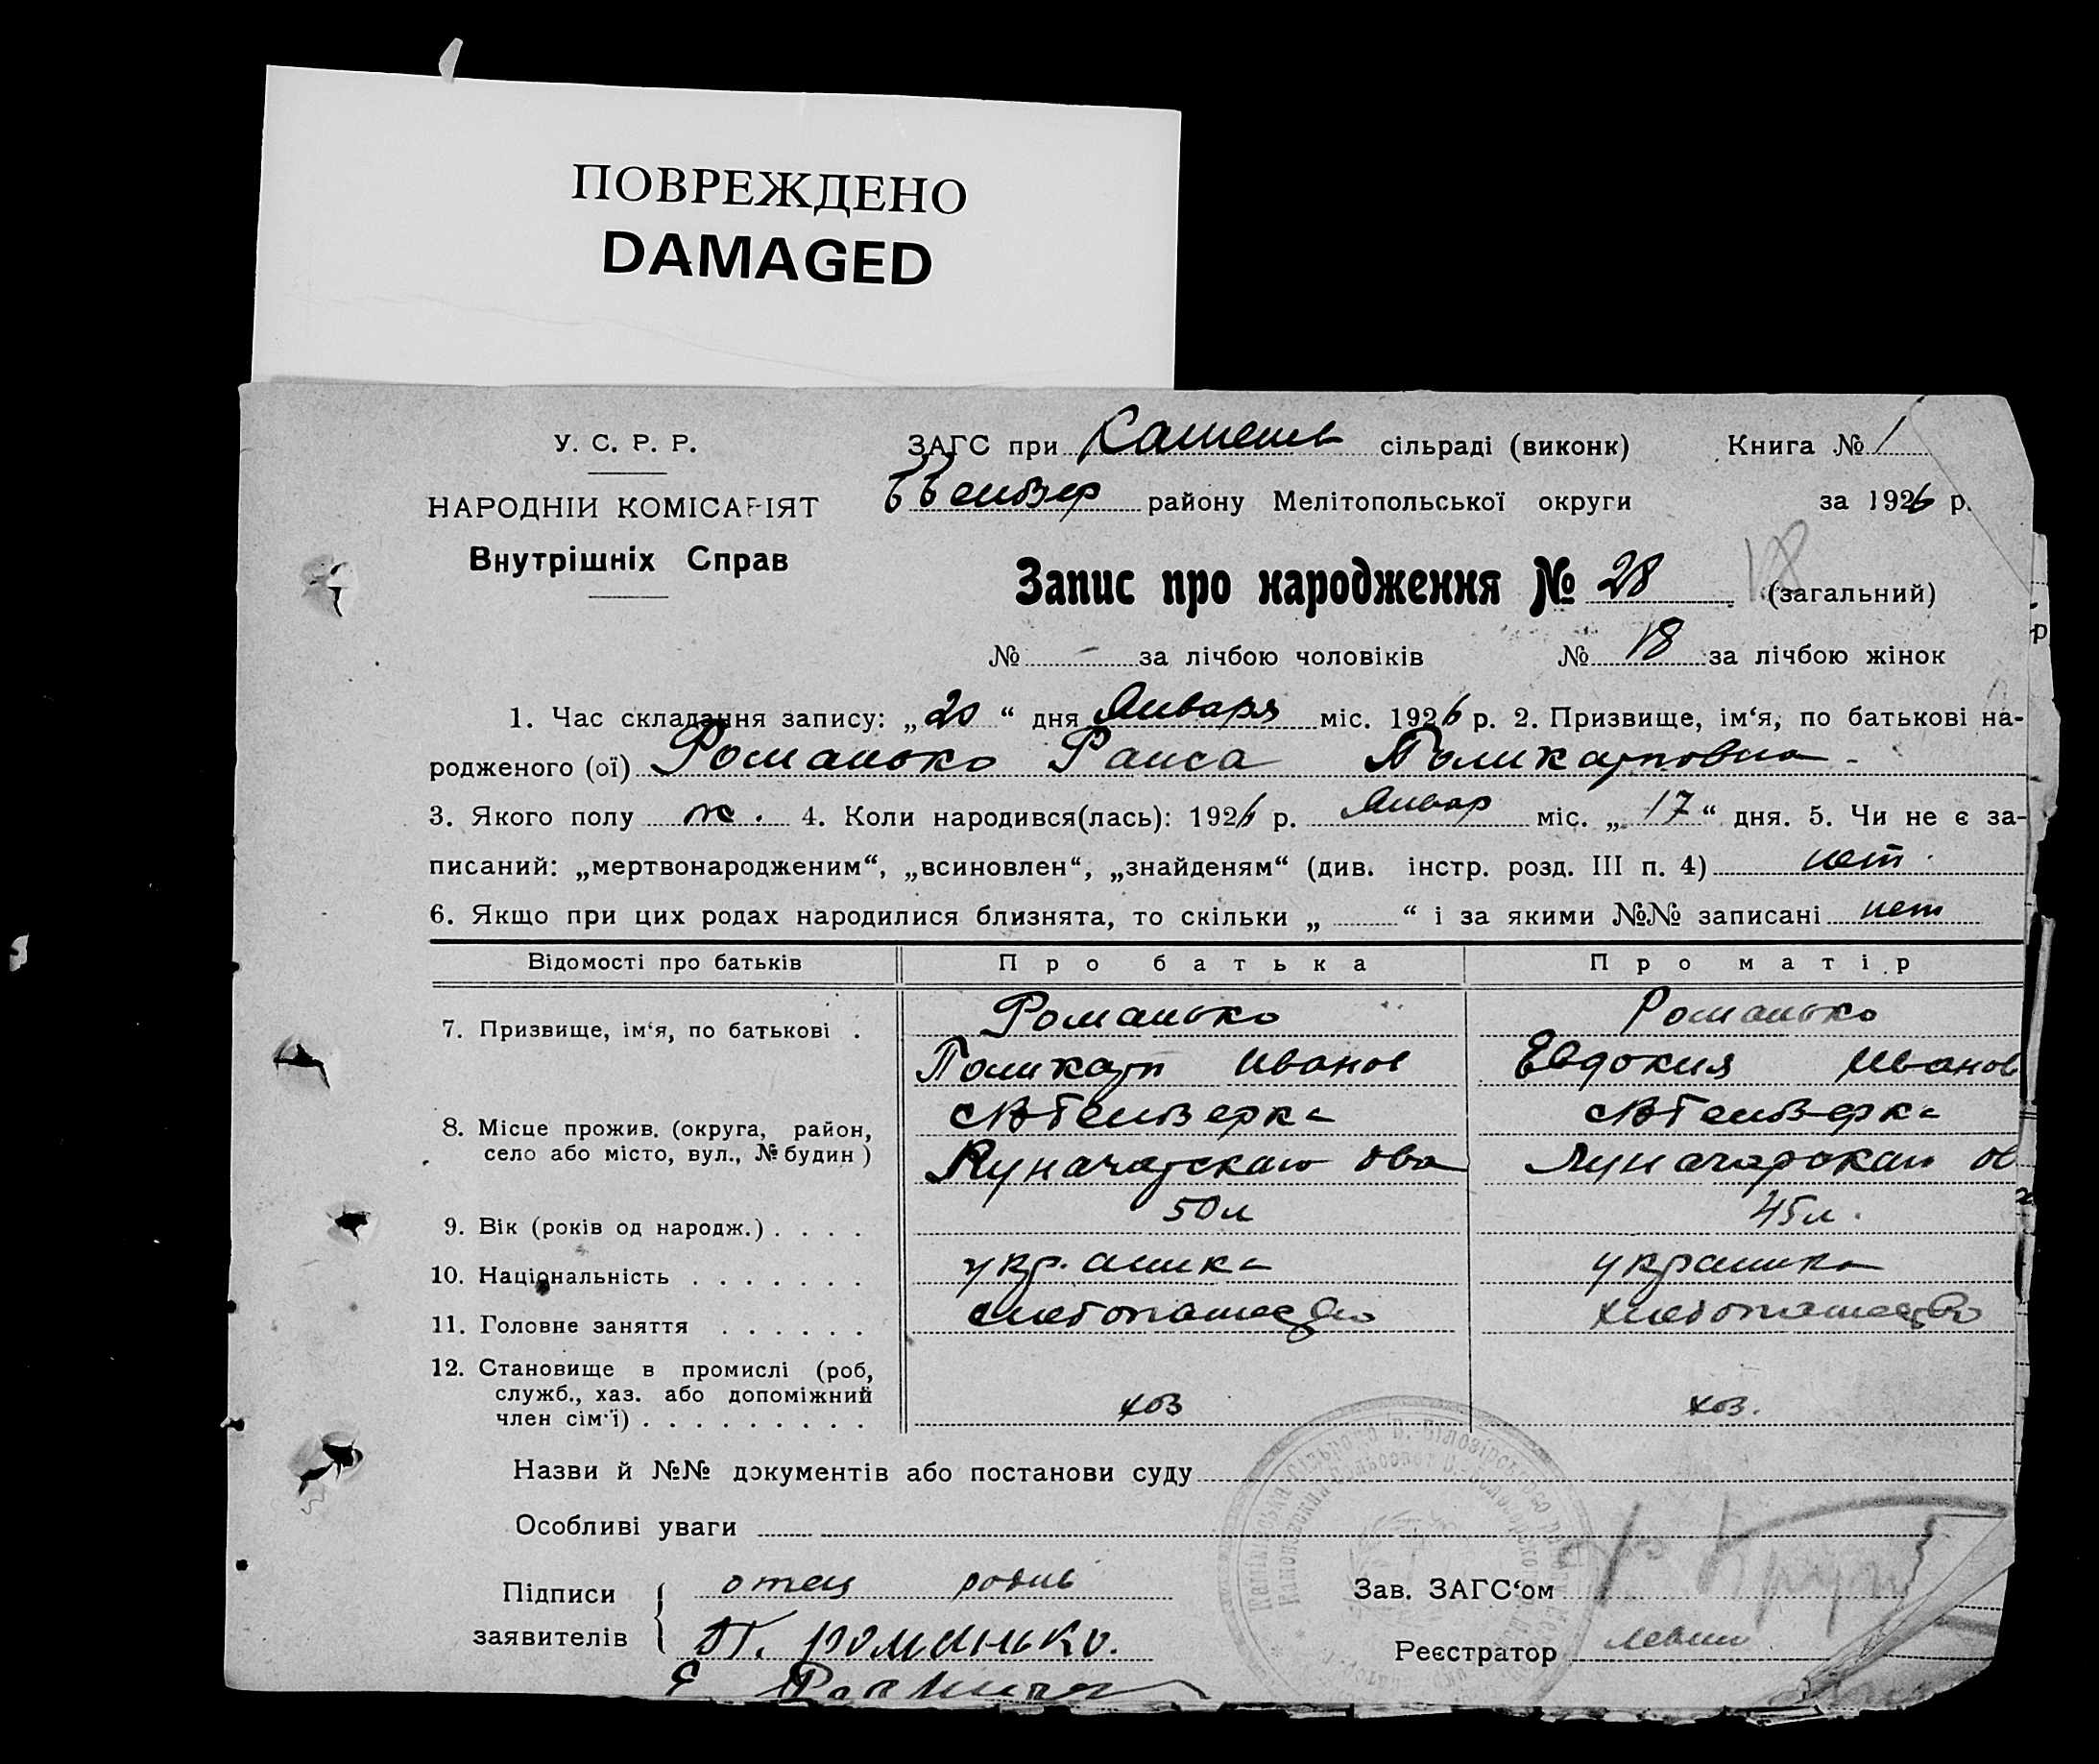 ПОВРЕЖДЕНО
DAMAGED
У. С. Р. Р.
НАРОДНІЙ КОМІСАРІЯТ
Внутрішніх Справ
ЗАГС при сільраді (виконк) Книга № 1
району Мелітопольської округи за 1926 р.
Запис про народження № 28 (загальний) 18
№ - за лічбою чоловіків № 18 за лічбою жінок
1. Час складання запису: „20“ дня Января міс. 1926 р. 2. Призвище, ім‘я, по батькові на-
родженого (ої) Романько Раиса Поликарповна -
3. Якого полу ж. 4. Коли народився(лась): 1926 р. Январ міс. „17“ дня. 5. Чи не є за-
писаний: „мертвонародженим“, „всиновлен“, „знайденям“ (див. інстр. розд. III п. 4) нет
6. Якщо при цих родах народилися близнята, то скільки „ “ і за якими №№ записані нет
Відомості про батьків Про батька Про матір
7. Призвище, ім‘я, по батькові . Романько Романько
Поликарп Иванов Евдокия Иванов
8. Місце прожив. (округа, район,
село або місто, вул., № будин)
Луначарская Луначарская
9. Вік (років од народж.) . . . . 50 л 45 л.
10. Національність . . . . . . . укр.аинка украинка
11. Головне заняття . . . . . . хлебопашество хлебопашество
12. Становище в промислі (роб,
служб., хаз. або допоміжний
член сім‘ї) . . . . . . . . . хоз хоз.
Назви й №№ документів або постанови суду
Особливі уваги
Підписи отец Зав. ЗАГС‘ом
заявителів П. романько. Реєстратор
Е